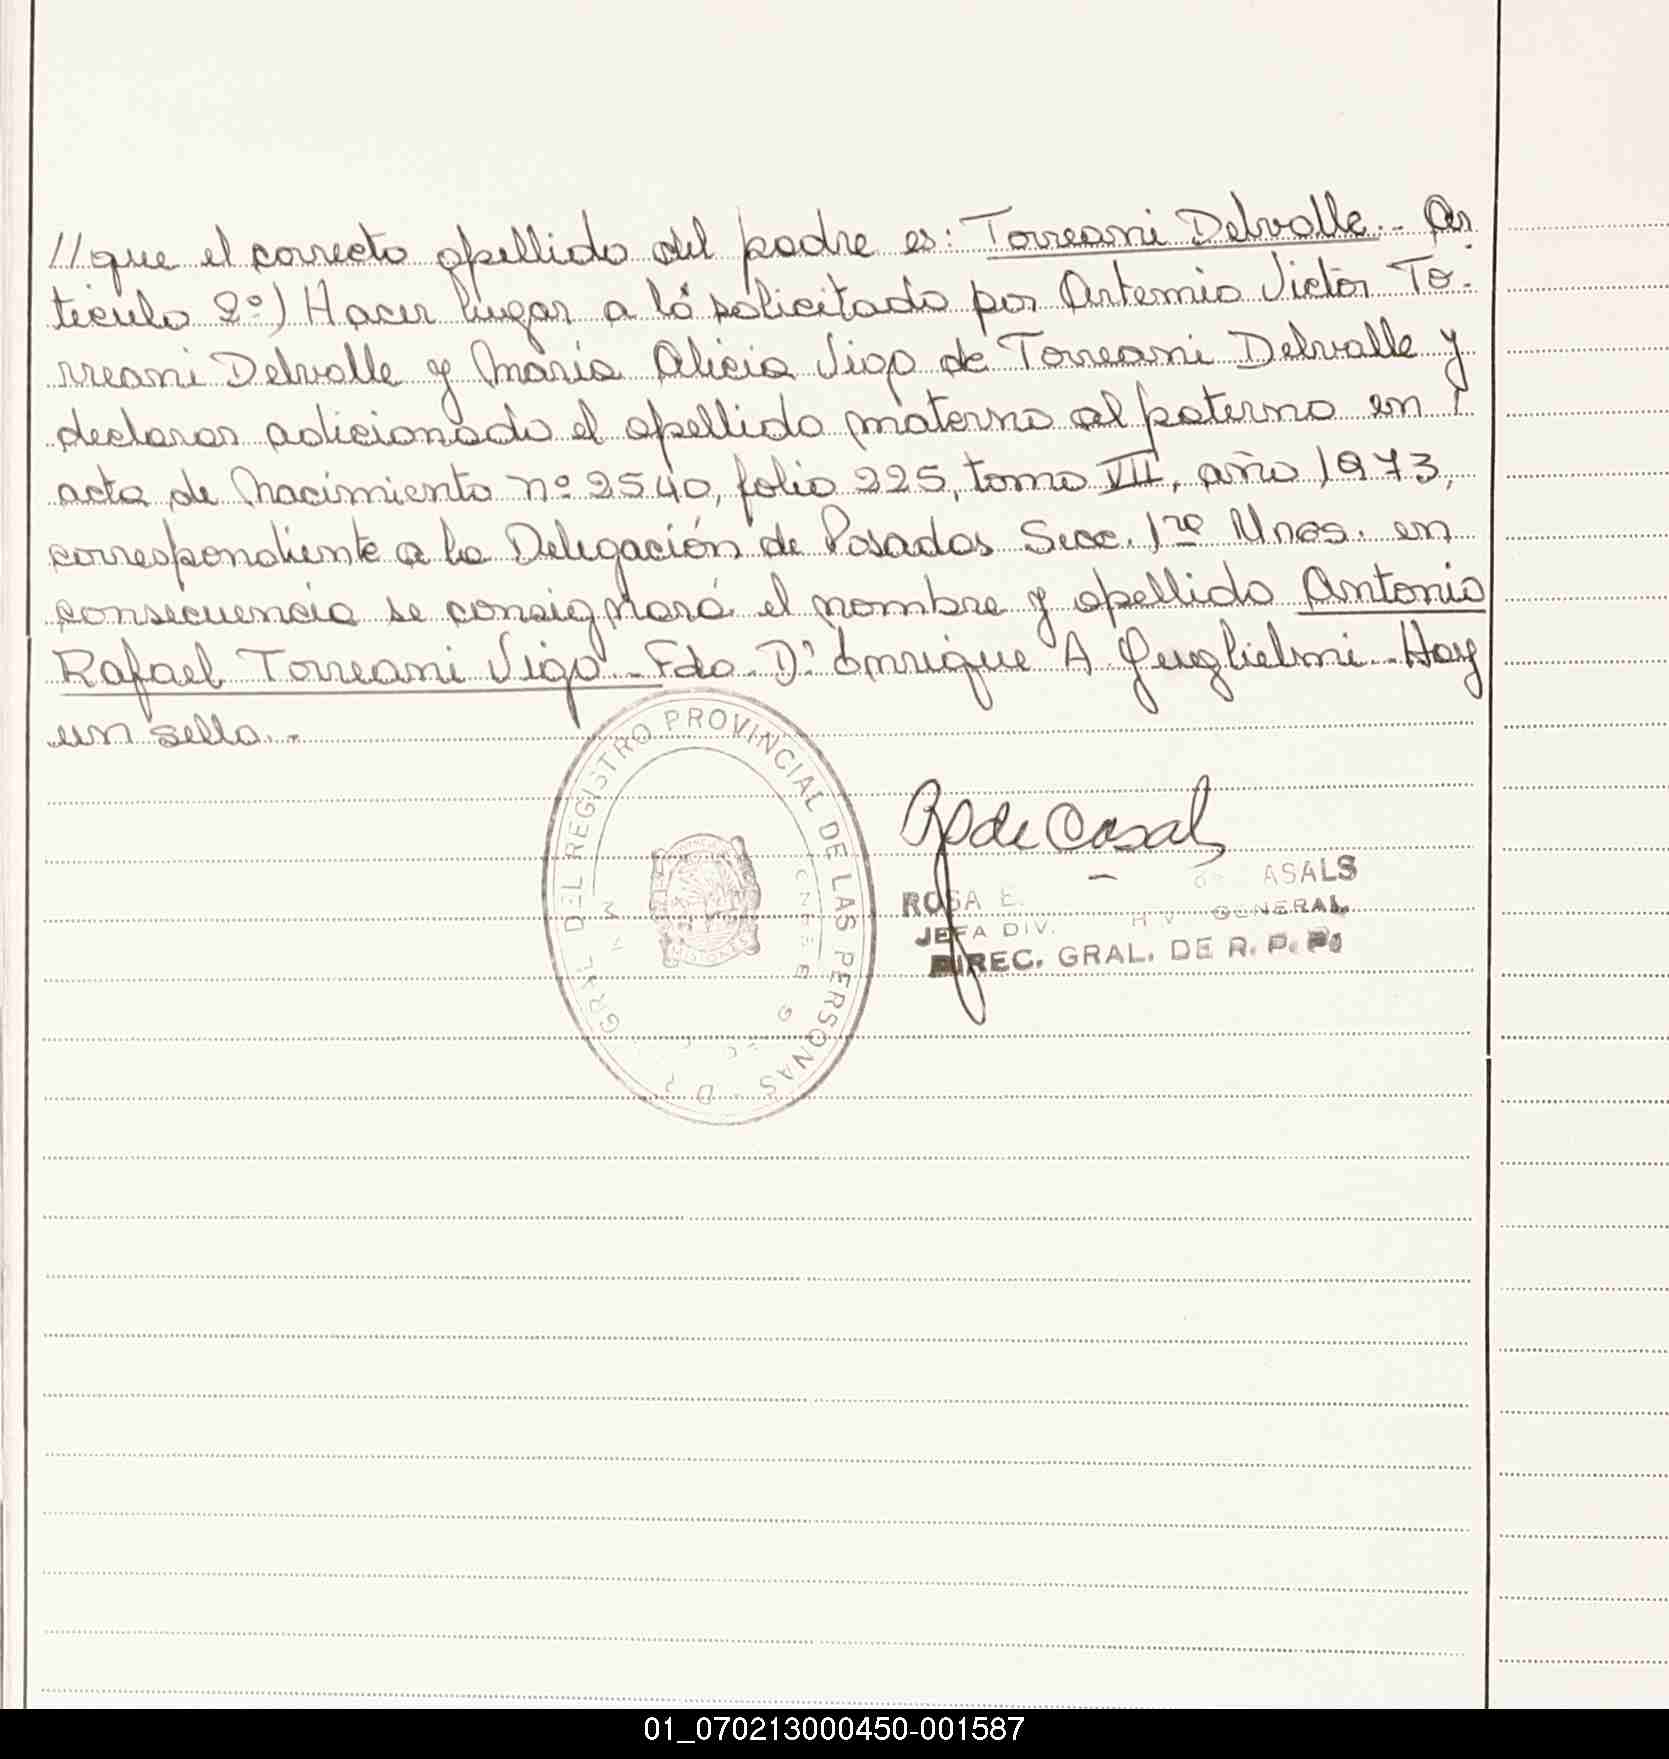 //que el correcto apellido del padre es: Torreani Delvalle.- Ar
tículo 2º.) Hacer lugar a lo solicitado por Artemio Victor To-
rreani Delvalle y María Alicia Vigo de Torreani Delvalle y
declarar adicionado el apellido materno al paterno en
acta de Nacimiento nº 2540, folio 225, tomo VII, año 1973,
correspondiente a la Delegación de Posadas Secc. 1ra Mnes. en
consecuencia se consignará el nombre y apellido Antonio
Rafael Torreani Vigo.- Fdo. Dr Enrique A Guglielmi.- Hay
un sello.-
GRAL DEL REGISTRO PROVINCIAL DE LAS PERSONAS
de Casals
ROSA E. ASALS
JEFA DIV. GENERAL
DIREC. GRAL. DE R. P. P.
01_070213000450-001587